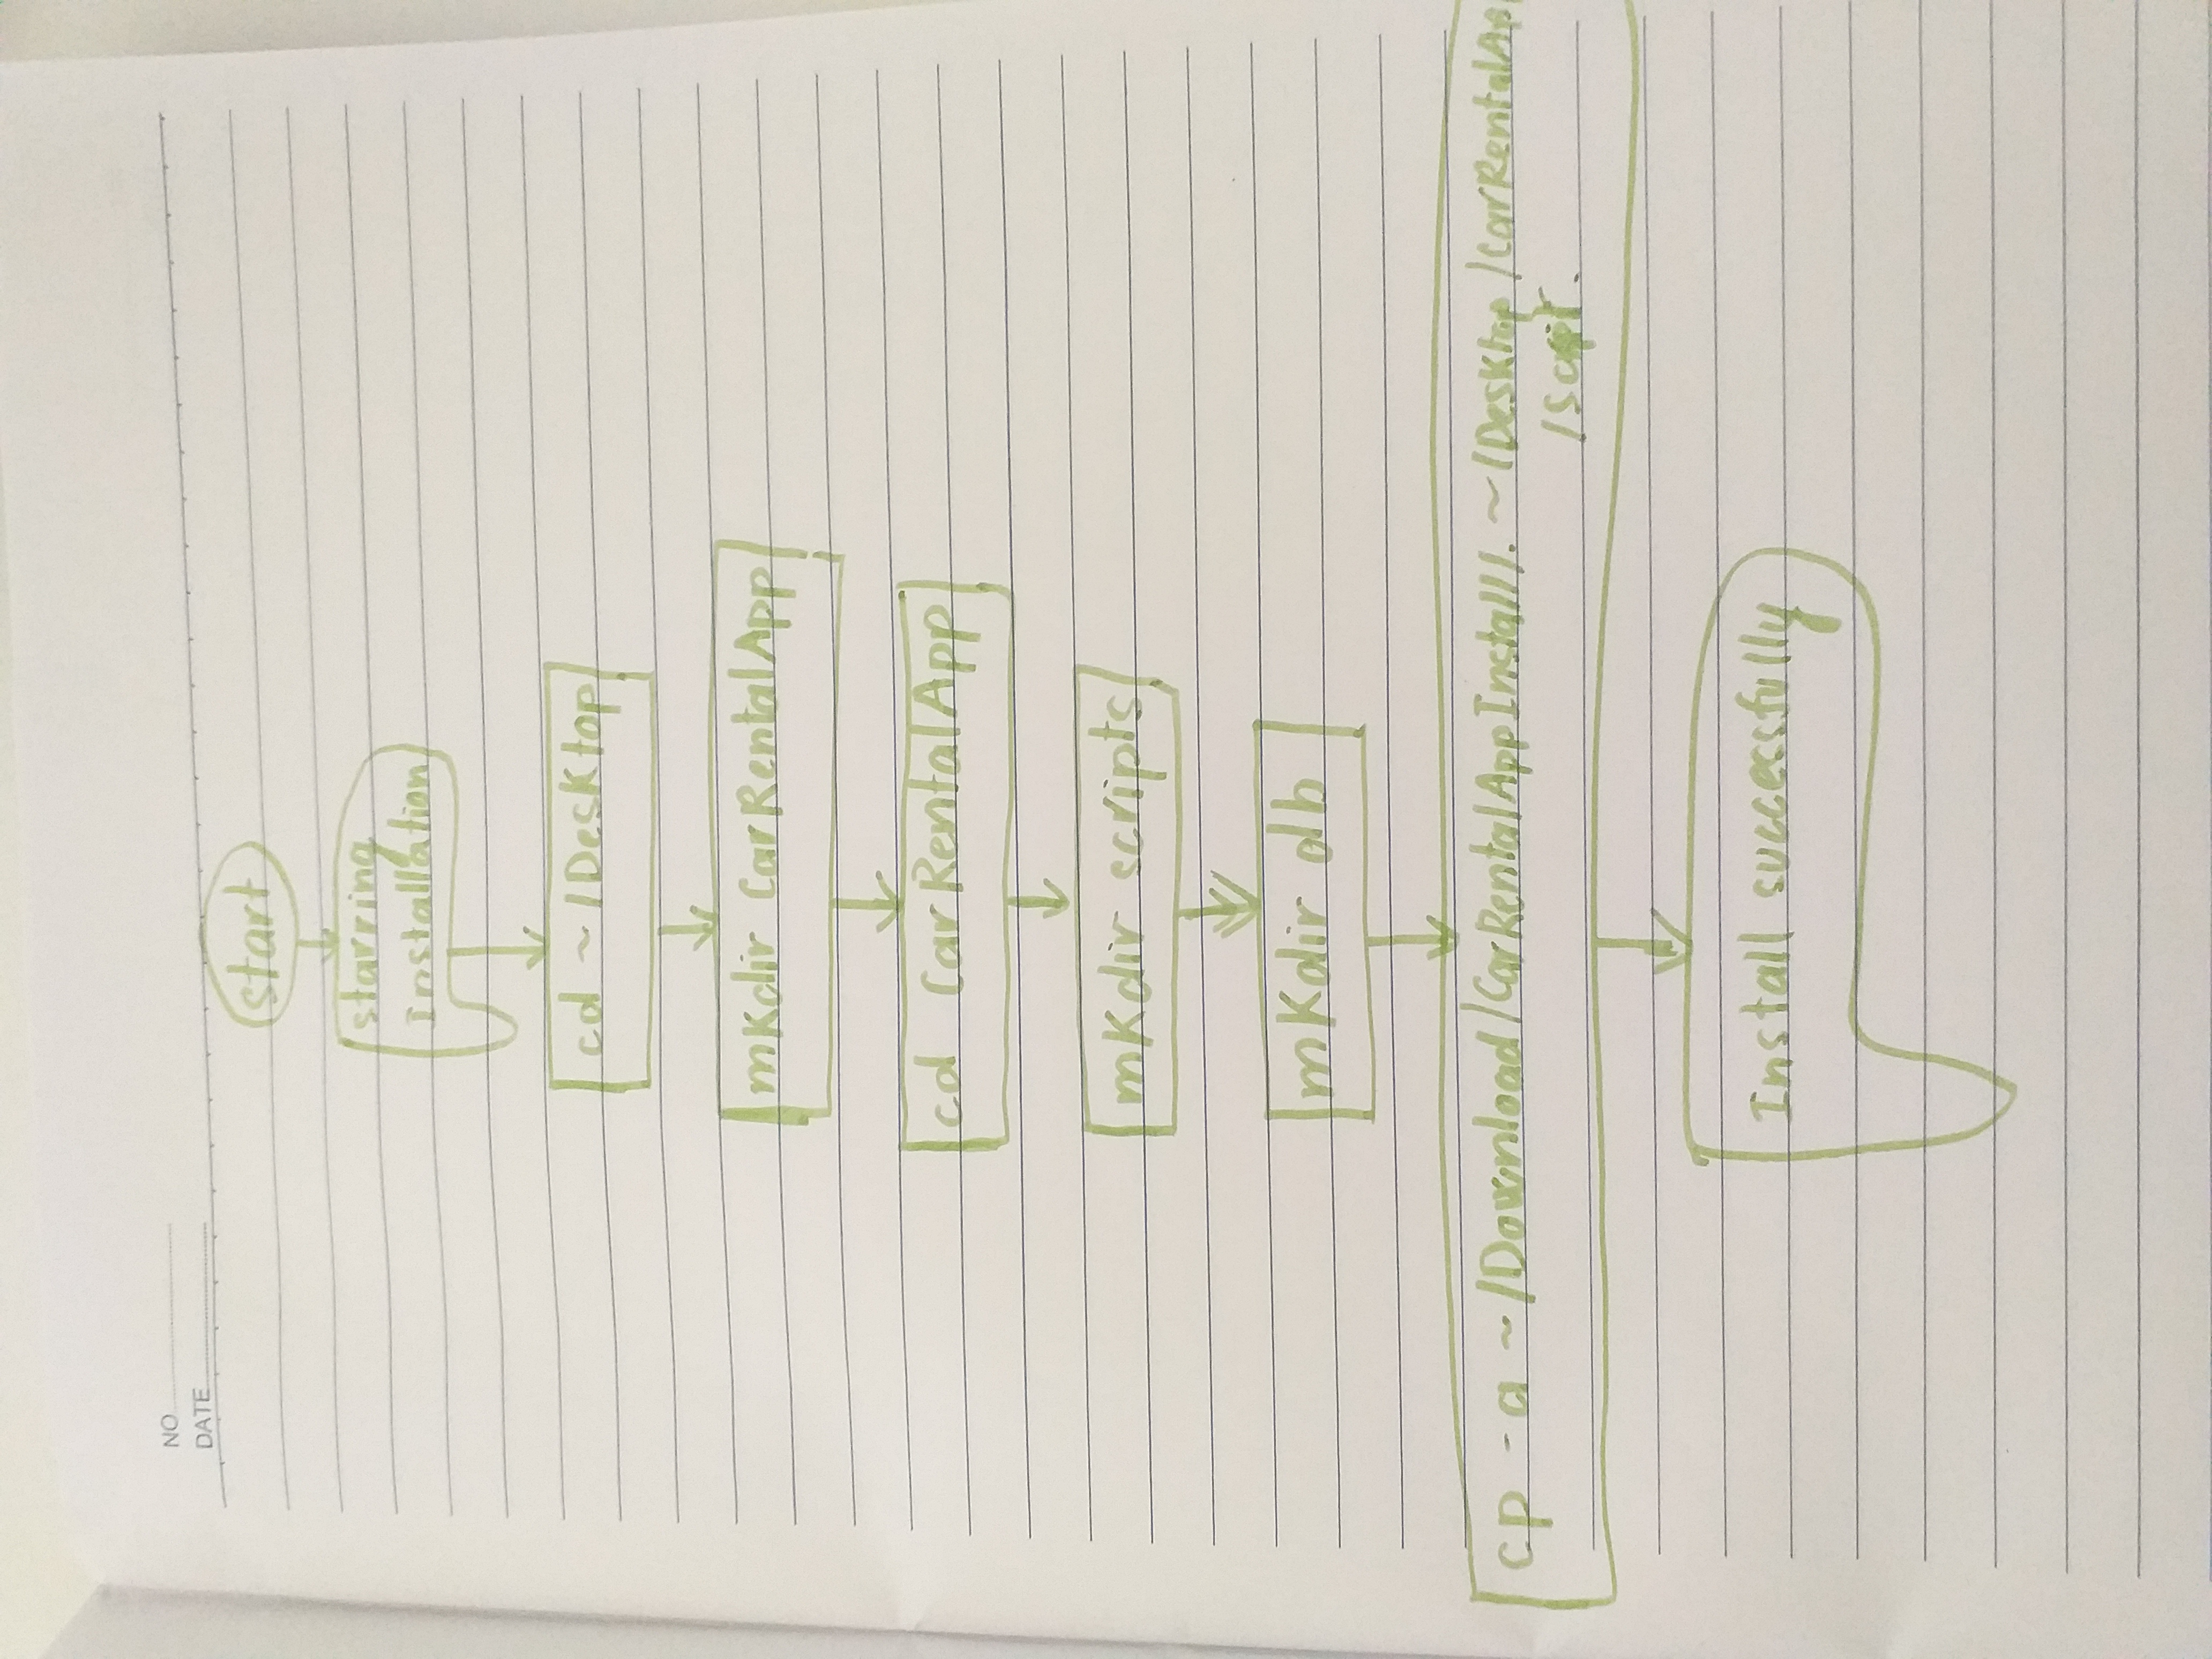 NO
DATE
start
starring
Installation
cd ~/Desktop
mkdir CarRentalApp
cd CarRentalApp
mkdir scripts
mkdir db
cp -a ~/Download/CarRentalAppInstall/. ~/Desktop/CarRentalAp
Install successfully